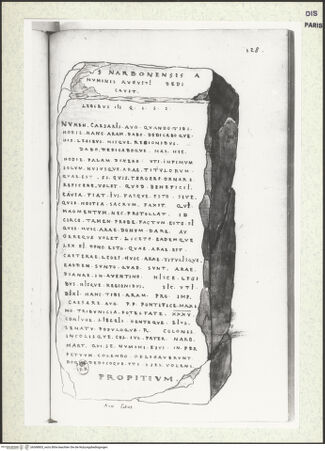 DIS
PARIS
128.
S NARBONENSIS A
NVMINIS AVGVSTI DEDI
CAVIT.
LEGIBVS IIS Q. I. S. S.
NVMEN. CAESARIS. AVG. QVANDO TIBI.
HODIE. HANC. ARAM. DABO. DEDICABOQVE.
HIS. LEGIBVS. HISQVE. REGIONIBVS.
DABO. DEDICABOQVE. HIC. HIC.
HODIE. PALAM DIXERO. VTI. INFIMVM
SOLVM. HVIVSQVE. ARAE. TITVLORVM.
QVE. EST. SI. QVIS. TERGERE. ORNARE.
REFICERE. VOLET. QVOD. BENEFICII.
CAVSA. FIAT. IVS. FASQVE. ESTO. SIVE.
QVIS. HOSTIA. SACRVM. FAXIT. QVI.
MAGMENTVM. NEC. PROTOLLAT. ID
CIRCO. TAMEN. PROBE. FACTVM. ESTO. SI
QVIS. HVIC. ARAE. DONVM. DARE. AV
GEREQVE. VOLET. LICETO. EADEMQVE
LEX EI. DONO. ESTO. QVAE. ARAE. EST.
CAETERAE. LEGES. HVIC. ARAE. TITVLISQVE.
EAEDEM. SVNTO. QVAE. SVNT. ARAE.
DIANAE. IN. AVENTINO. HISCE. LEGI
BVS. HISQVE. REGIONIBVS. SIC. VTI
DIXI. HANC. TIBI. ARAM. PRO. IMP.
CAESARE AVG. P. P. PONTIFICE. MAXI
MO TRIBVNICIA. POTESTATE. XXXV
CONIVGE. LIBERIS GENTEQVE. EIVS.
SENATV. POPVLOQVE. R. COLONIS
INCOLISQVE. COL. IVL. PATER. NARB.
MART. QVI. SE. NVMINI. EIVS. IN. PER
PETVVM COLENDO. OBLIGAVERVNT.
DOQVE. DEDICOQVE. VTI. SIES. VOLENS.
PROPITIVM.